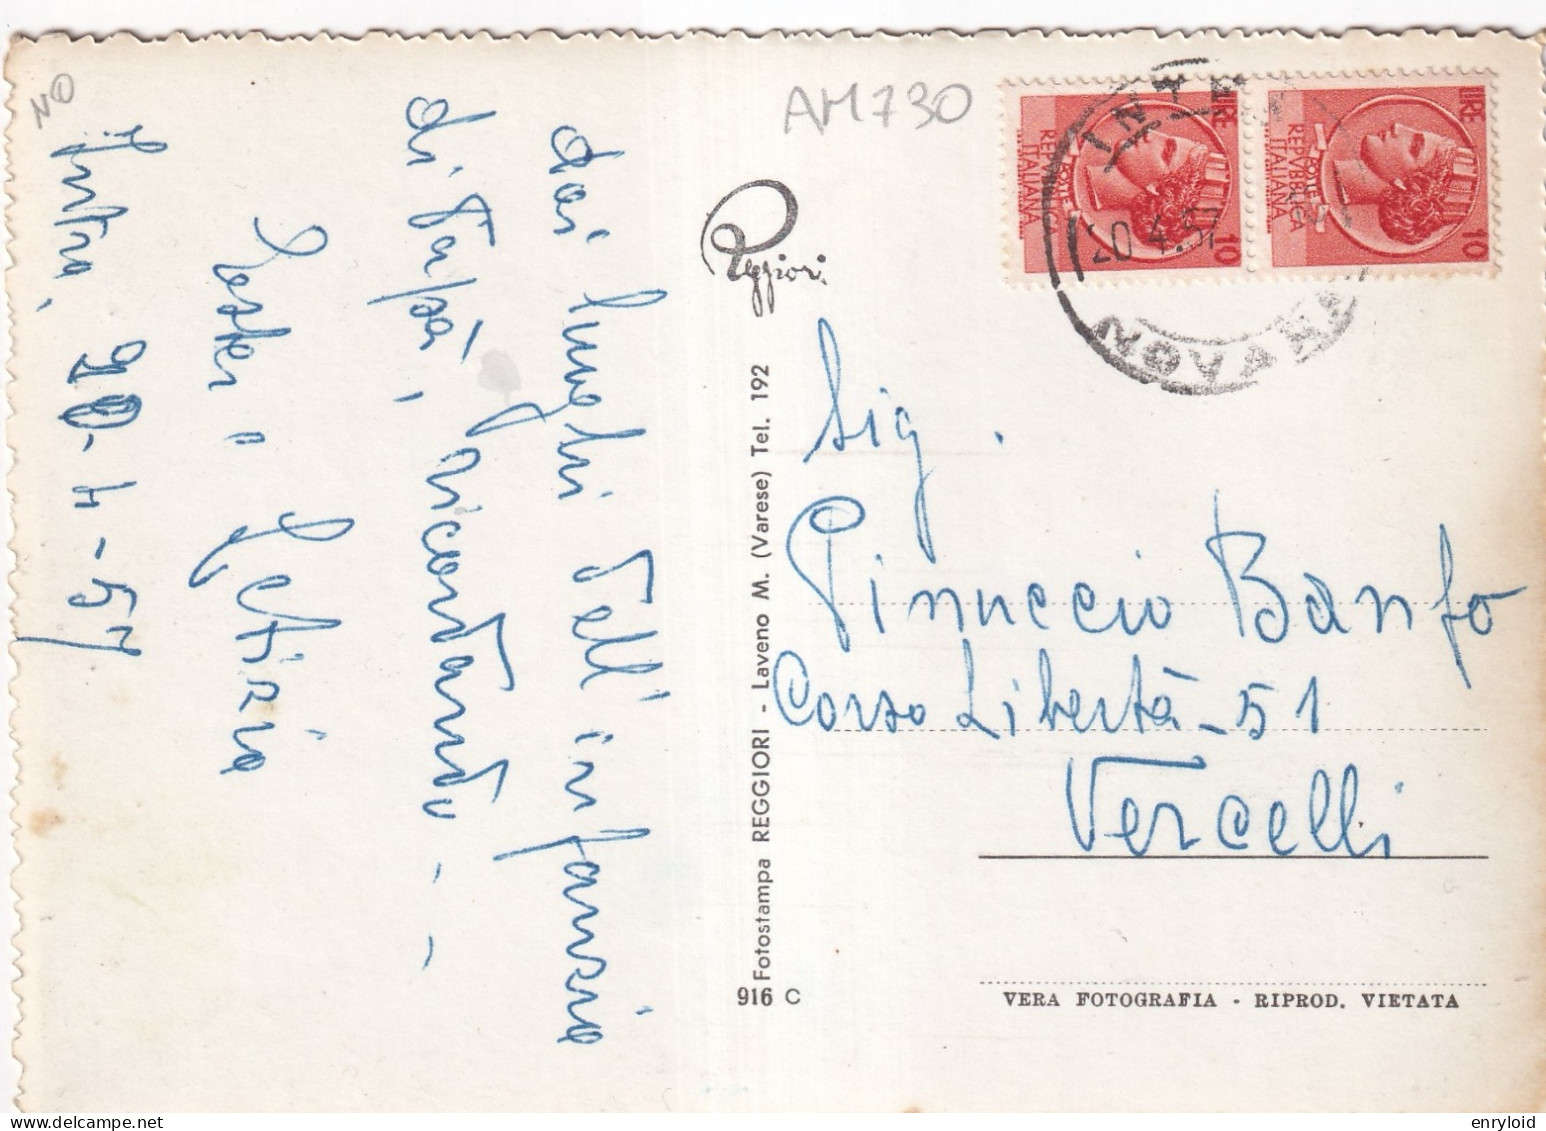 dai luoghi dell'infanzia
di Papà, ricordando - -
Letizia
Intra, 20-4-57
NO
AM730
Reggiori
Fotostampa REGGIORI - Laveno M. (Varese) Tel. 192
916 C
LIRE 10
REPVBBLICA
ITALIANA
POSTE
LIRE 10
REPVBBLICA
ITALIANA
POSTE
INTRA
20.4.57
NOVARA
Sig.
Pinuccio Banfo
Corso Libertà - 51
Vercelli
VERA FOTOGRAFIA - RIPROD. VIETATA
enryloid